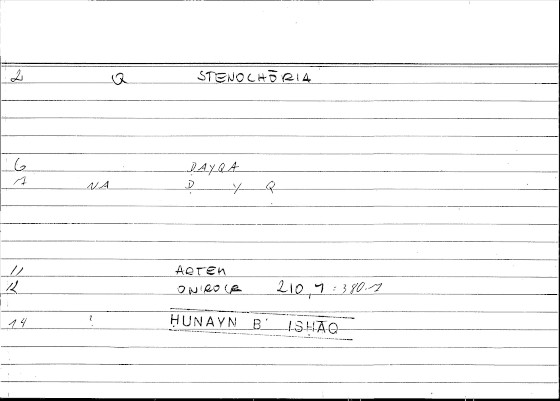 2 Q STENOCHŌRIA
6 ḌAYQA
7 NA Ḍ Y Q
11 ARTEM
12 ONIROCR 210,7 : 380.7
14 ḤUNAYN B ISḤĀQ